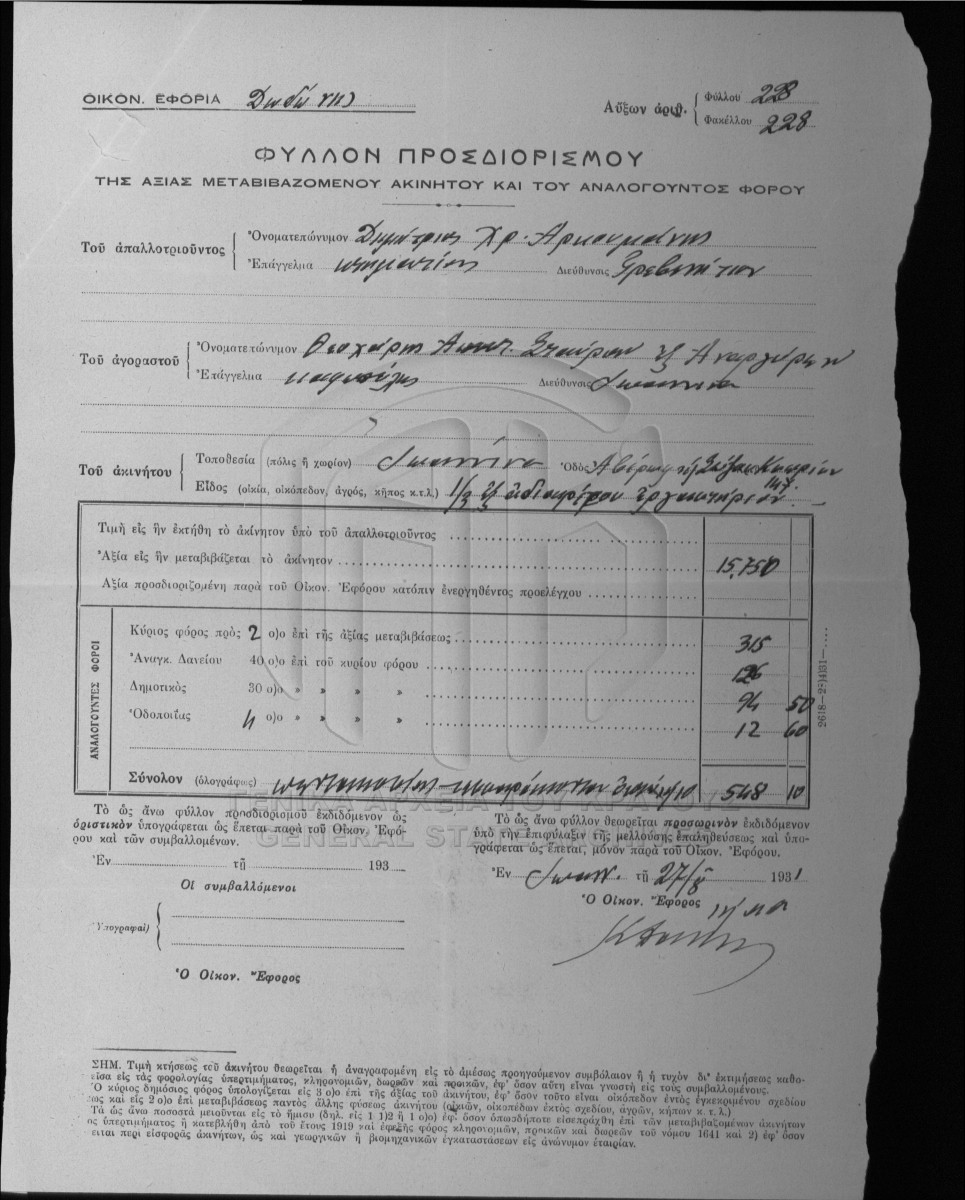 ΟΙΚΟΝ. ΕΦΟΡΙΑ
Αὔξων ἀριθ. Φύλλου 228
Φακέλλου 228
ΦΥΛΛΟΝ ΠΡΟΣΔΙΟΡΙΣΜΟΥ
ΤΗΣ ΑΞΙΑΣ ΜΕΤΑΒΙΒΑΖΟΜΕΝΟΥ ΑΚΙΝΗΤΟΥ ΚΑΙ ΤΟΥ ΑΝΑΛΟΓΟΥΝΤΟΣ ΦΟΡΟΥ
Τοῦ ἀπαλλοτριοῦντος Ὀνοματεπώνυμον Δημήτριος Χρ.
Ἐπάγγελμα κτηματίας Διεύθυνσις
Τοῦ ἀγοραστοῦ Ὀνοματεπώνυμον Θεοχάρης
Ἐπάγγελμα Διεύθυνσις Ἰωάννινα
Τοῦ ἀκινήτου Τοποθεσία (πόλις ἢ χωρίον) Ἰωάννινα Ὁδὸς Ἀβέρωφ
Εἶδος (οἰκία, οἰκόπεδον, ἀγρός, κῆπος κ.τ.λ.) 1/3 ἐξ ἀδιαιρέτου ἐργαστηρίου
Τιμὴ εἰς ἣν ἐκτήθη τὸ ἀκίνητον ὑπὸ τοῦ ἀπαλλοτριοῦντος
Ἀξία εἰς ἣν μεταβιβάζεται τὸ ἀκίνητον 15,750
Ἀξία προσδιοριζομένη παρὰ τοῦ Οἰκον. Ἐφόρου κατόπιν ἐνεργηθέντος προελέγχου
ΑΝΑΛΟΓΟΥΝΤΕΣ ΦΟΡΟΙ
Κύριος φόρος πρὸς 2 ο)ο ἐπὶ τῆς ἀξίας μεταβιβάσεως 315
Ἀναγκ. Δανείου 40 ο)ο ἐπὶ τοῦ κυρίου φόρου 126
Δημοτικὸς 30 ο)ο » » » » 94 50
Ὁδοποιΐας 4 ο)ο » » » » 12 60
Σύνολον (ὁλογράφως) 548 10
2618—2)4)31—
Τὸ ὡς ἄνω φύλλον προσδιορισμοῦ ἐκδιδόμενον ὡς
ὁριστικὸν ὑπογράφεται ὡς ἕπεται παρὰ τοῦ Οἰκον. Ἐφό-
ρου καὶ τῶν συμβαλλομένων.
Ἐν τῇ 193
Οἱ συμβαλλόμενοι
Ὑπογραφαὶ)
Ὁ Οἰκον. Ἔφορος
Τὸ ὡς ἄνω φύλλον θεωρεῖται προσωρινὸν ἐκδιδόμενον
ὑπὸ τὴν ἐπιφύλαξιν τῆς μελλούσης ἐπαληθεύσεως καὶ ὑπο-
γράφεται ὡς ἕπεται, μόνον παρὰ τοῦ Οἰκον. Ἐφόρου.
Ἐν Ἰωάνν. τῇ 27/8 1931
Ὁ Οἰκον. Ἔφορος
ΓΕΝΙΚΑ ΑΡΧΕΙΑ ΤΟΥ ΚΡΑΤΟΥΣ
GENERAL STATE ARCHIVES
ΣΗΜ. Τιμὴ κτήσεως τοῦ ἀκινήτου θεωρεῖται ἡ ἀναγραφομένη εἰς τὸ ἀμέσως προηγούμενον συμβόλαιον ἢ ἡ τυχὸν δι' ἐκτιμήσεως καθο-
εῖσα εἰς τὰς φορολογίας ὑπερτιμήματος, κληρονομιῶν, δωρεῶν καὶ προικῶν, ἐφ' ὅσον αὕτη εἶναι γνωστὴ εἰς τοὺς συμβαλλομένους.
Ὁ κύριος δημόσιος φόρος ὑπολογίζεται εἰς 3 ο)ο ἐπὶ τῆς ἀξίας τοῦ ἀκινήτου, ἐφ' ὅσον τοῦτο εἶναι οἰκόπεδον ἐντὸς ἐγκεκριμένου σχεδίου
ως καὶ εἰς 2 ο)ο ἐπὶ μεταβιβάσεως παντὸς ἄλλης φύσεως ἀκινήτου (οἰκιῶν, οἰκοπέδων ἐκτὸς σχεδίου, ἀγρῶν, κήπων κ. τ. λ.)
Τὰ ὡς ἄνω ποσοστὰ μειοῦνται εἰς τὸ ἥμισυ (δηλ. εἰς 1 1)2 ἢ 1 ο)ο) ἐφ' ὅσον ὁπωσδήποτε εἰσεπράχθη ἐπὶ τῶν μεταβιβαζομένων ἀκινήτων
ος ὑπερτιμήματος ἢ κατεβλήθη ἀπὸ τοῦ ἔτους 1919 καὶ ἐφεξῆς φόρος κληρονομιῶν, προικῶν καὶ δωρεῶν τοῦ νόμου 1641 καὶ 2) ἐφ' ὅσον
ειται περὶ εἰσφορᾶς ἀκινήτων, ὡς καὶ γεωργικῶν ἢ βιομηχανικῶν ἐγκαταστάσεων εἰς ἀνώνυμον ἑταιρίαν.